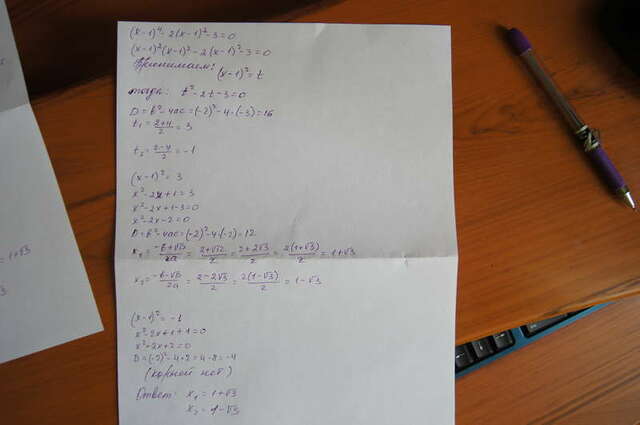 (x-1)⁴-2(x-1)²-3=0
(x-1)²(x-1)²-2(x-1)²-3=0
Принимаем:
(x-1)²=t
тогда: t²-2t-3=0
D=b²-4ac=(-2)²-4·(-3)=16
t₁=(2+4)/2=3
t₂=(2-4)/2=-1
(x-1)²=3
x²-2x+1=3
x²-2x+1-3=0
x²-2x-2=0
D=b²-4ac=(-2)²-4·(-2)=12
x₁=(-b+√D)/2a=(2+√12)/2=(2+2√3)/2=2(1+√3)/2=1+√3
x₂=(-b-√D)/2a=(2-2√3)/2=2(1-√3)/2=1-√3
(x-1)²=-1
x²-2x+1+1=0
x²-2x+2=0
D=(-2)²-4·2=4-8=-4
(корней нет)
Ответ: x₁=1+√3
x₂=1-√3
=1+√3